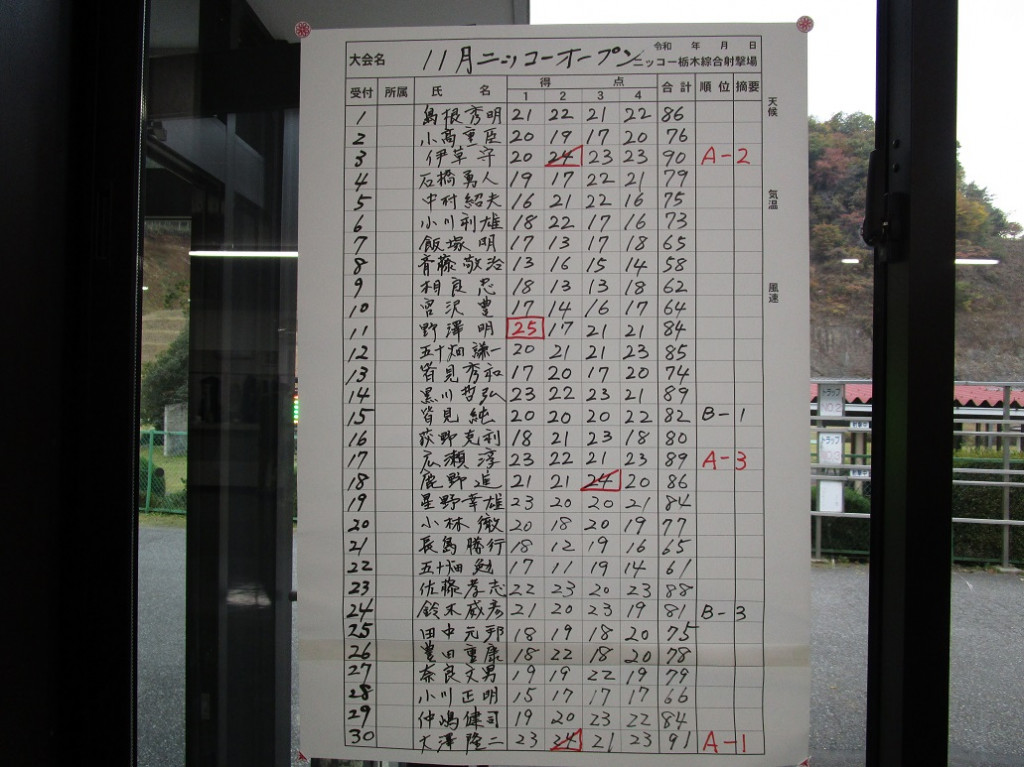 大会名 11月ニッコーオープン 令和 年 月 日
ニッコー栃木綜合射撃場
受付 所属 氏名 得点 合計 順位 摘要
1 2 3 4
1 島根秀明 21 22 21 22 86
2 小高重臣 20 19 17 20 76
3 伊草守 20 24 23 23 90 A-2
4 石橋勇人 19 17 22 21 79
5 中村紹夫 16 21 22 16 75
6 小川利雄 18 22 17 16 73
7 飯塚明 17 13 17 18 65
8 斉藤敬治 13 16 15 14 58
9 相良忠 18 13 13 18 62
10 宮沢豊 17 14 16 17 64
11 野澤明 25 17 21 21 84
12 五十畑謙一 20 21 21 23 85
13 皆見秀和 17 20 17 20 74
14 黒川哲弘 23 22 23 21 89
15 皆見純 20 20 20 22 82 B-1
16 荻野克利 18 21 23 18 80
17 広瀬淳 23 22 21 23 89 A-3
18 鹿野進 21 21 24 20 86
19 星野幸雄 23 20 20 21 84
20 小林徹 20 18 20 19 77
21 長島勝行 18 12 19 16 65
22 五十畑勉 17 11 19 14 61
23 佐藤孝志 22 23 20 23 88
24 鈴木威彦 21 20 23 19 81 B-3
25 田中元邦 18 19 18 20 75
26 豊田重康 18 22 18 20 78
27 奈良文男 19 19 22 19 79
28 小川正明 15 17 17 17 66
29 仲嶋健司 19 20 23 22 84
30 大澤隆二 23 24 21 23 91 A-1
天候
気温
風速
トラップ
トラップ